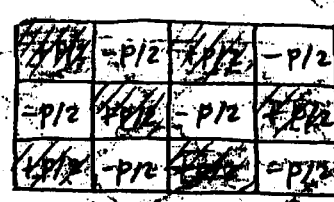 +P/2 -P/2 +P/2 -P/2
-P/2 +P/2 -P/2 +P/2
+P/2 -P/2 -P/2